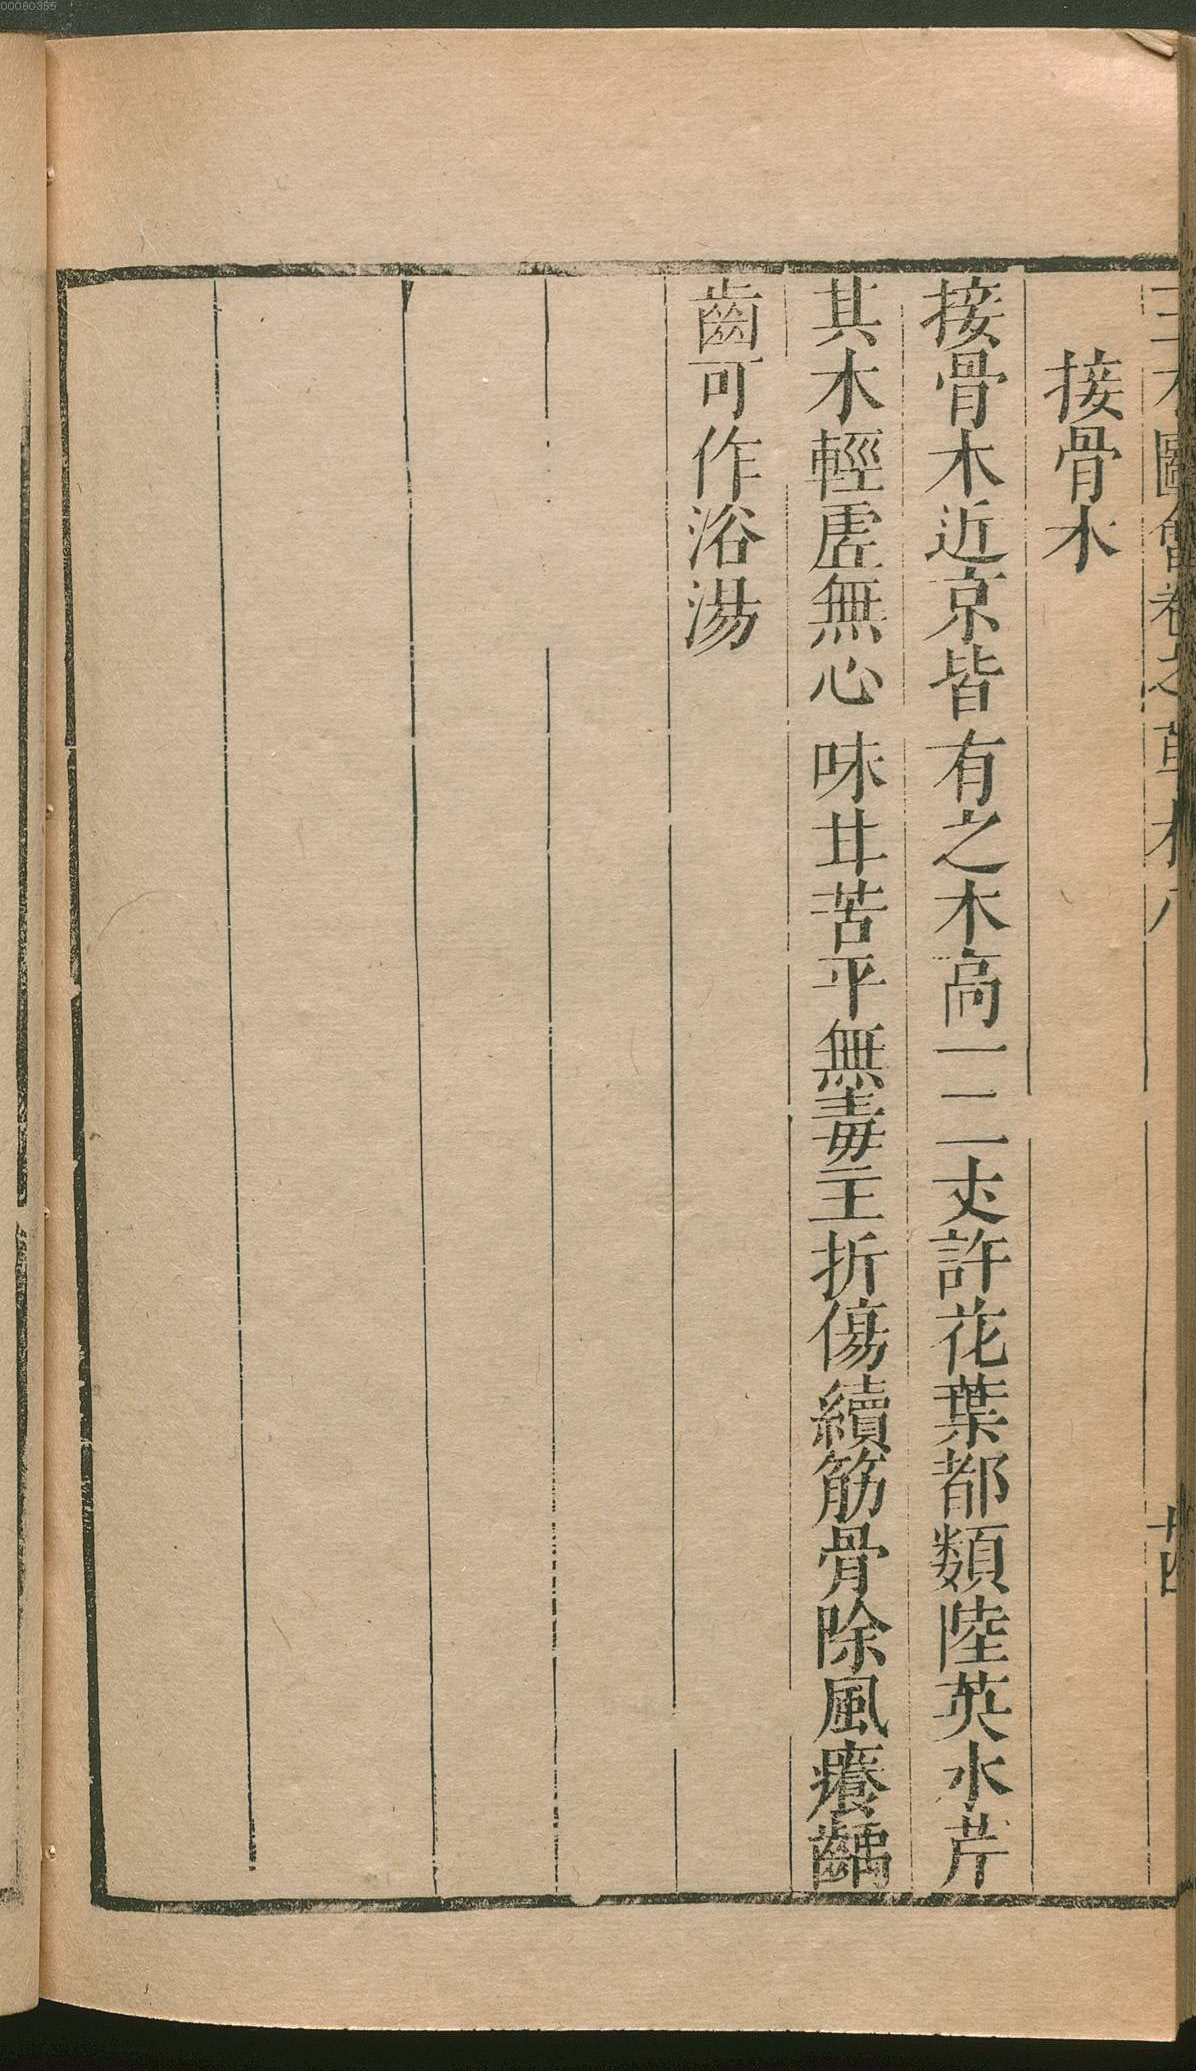 三才圖會卷之草木八 廿四
接骨木
接骨木近京皆有之木高一二丈許花葉都類陸英水芹
其木輕虗無心味甘苦平無毒主折傷續筋骨除風癢齲
齒可作浴湯
00060355